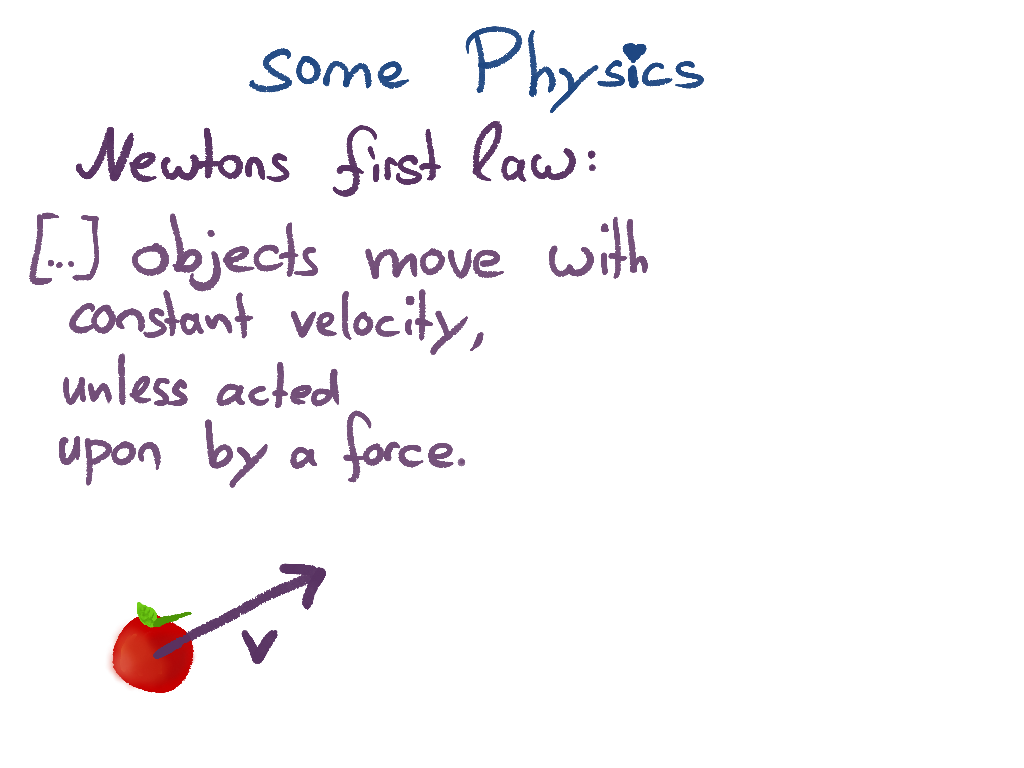 some Physics
Newtons first law:
[...] objects move with
constant velocity,
unless acted
upon by a force.
v